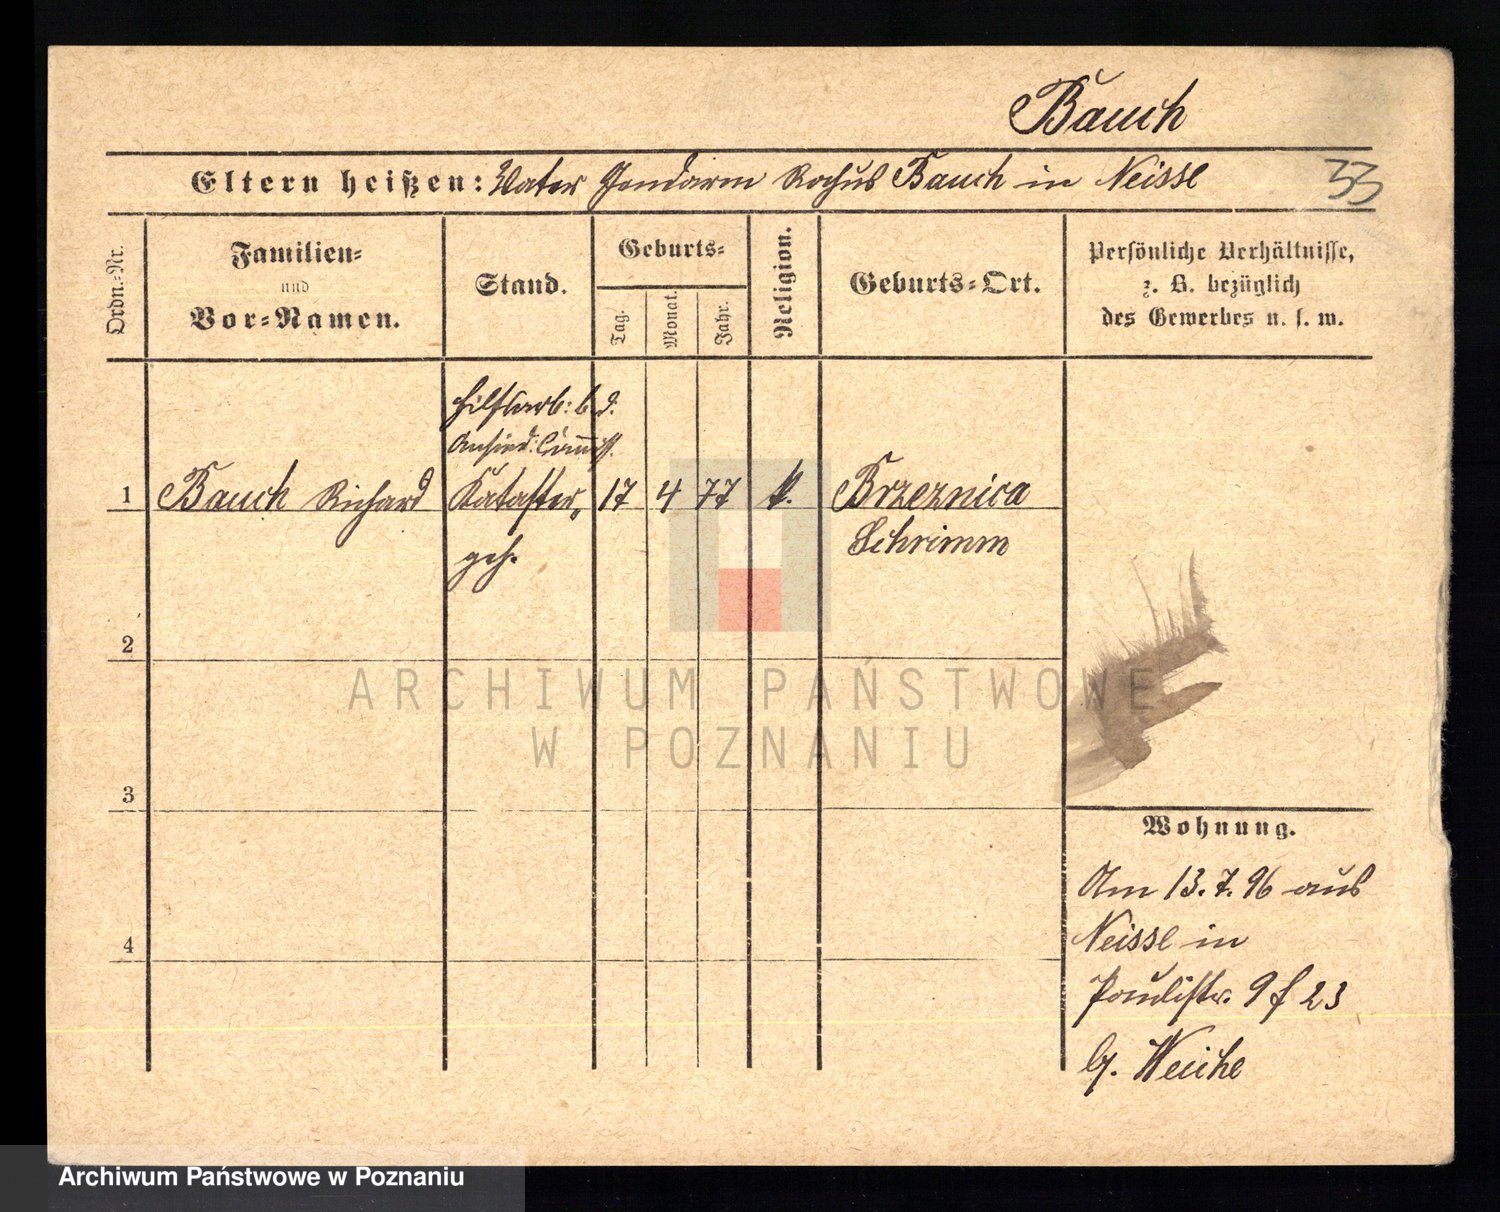 Bauch
Eltern heißen: Vater Gendarm Rochus Bauch in Neisse
33
Ordn.-Nr.
Familien-
und
Vor-Namen.
Stand.
Geburts-
Tag.
Monat.
Jahr.
Religion.
Geburts-Ort.
Persönliche Verhältnisse,
z. B. bezüglich
des Gewerbes u. s. w.
Hilfsarb: b. d.
Ansied: Commiss.
1 Bauch Richard Kataster, 17 4 77 k. Brzeznica
geh. Schrimm
2
3
4
Wohnung.
Am 13.7.96 aus
Neisse in
Paulistr. 9 f 23
b/. Weiche
ARCHIWUM PAŃSTWOWE
W POZNANIU
Archiwum Państwowe w Poznaniu